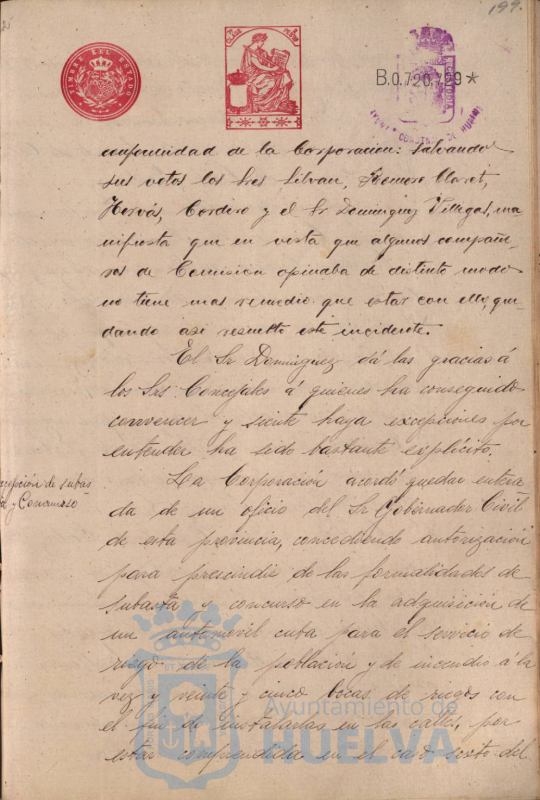 199.
TIMBRE DEL ESTADO
B.0.720.759*
conformidad de la Corporación: Salvando
sus votos los Sres Silvan, Romero Claret,
Hervás, Cordero y el Sr Dominguez Villegas, ma
nifiesta que en vista que algunos compañe-
ros de Comisión opinaba de distinto modo
no tiene mas remedio que estar con ellos, que
dando asi resuelto este incidente.
El Sr Dominguez dá las gracias á
los Srs Concejales á quienes ha conseguido
convencer y siente haya excepciones por
entender ha sido bastante explícito.
cepción de subas
a y Concurso
La Corporación acordó quedar entera
da de un oficio del Sr Gobernador Civil
de esta provincia, concediendo autorización
para prescindir de las formalidades de
subasta y concurso en la adquisición de
un automovil cuba para el servicio de
riego de la población y de incendio á la
vez y veinte y cinco bocas de riegos con
el fin de instalarlas en las calles, por
estar comprendida en el caso sexto del
Ayuntamiento de
HUELVA